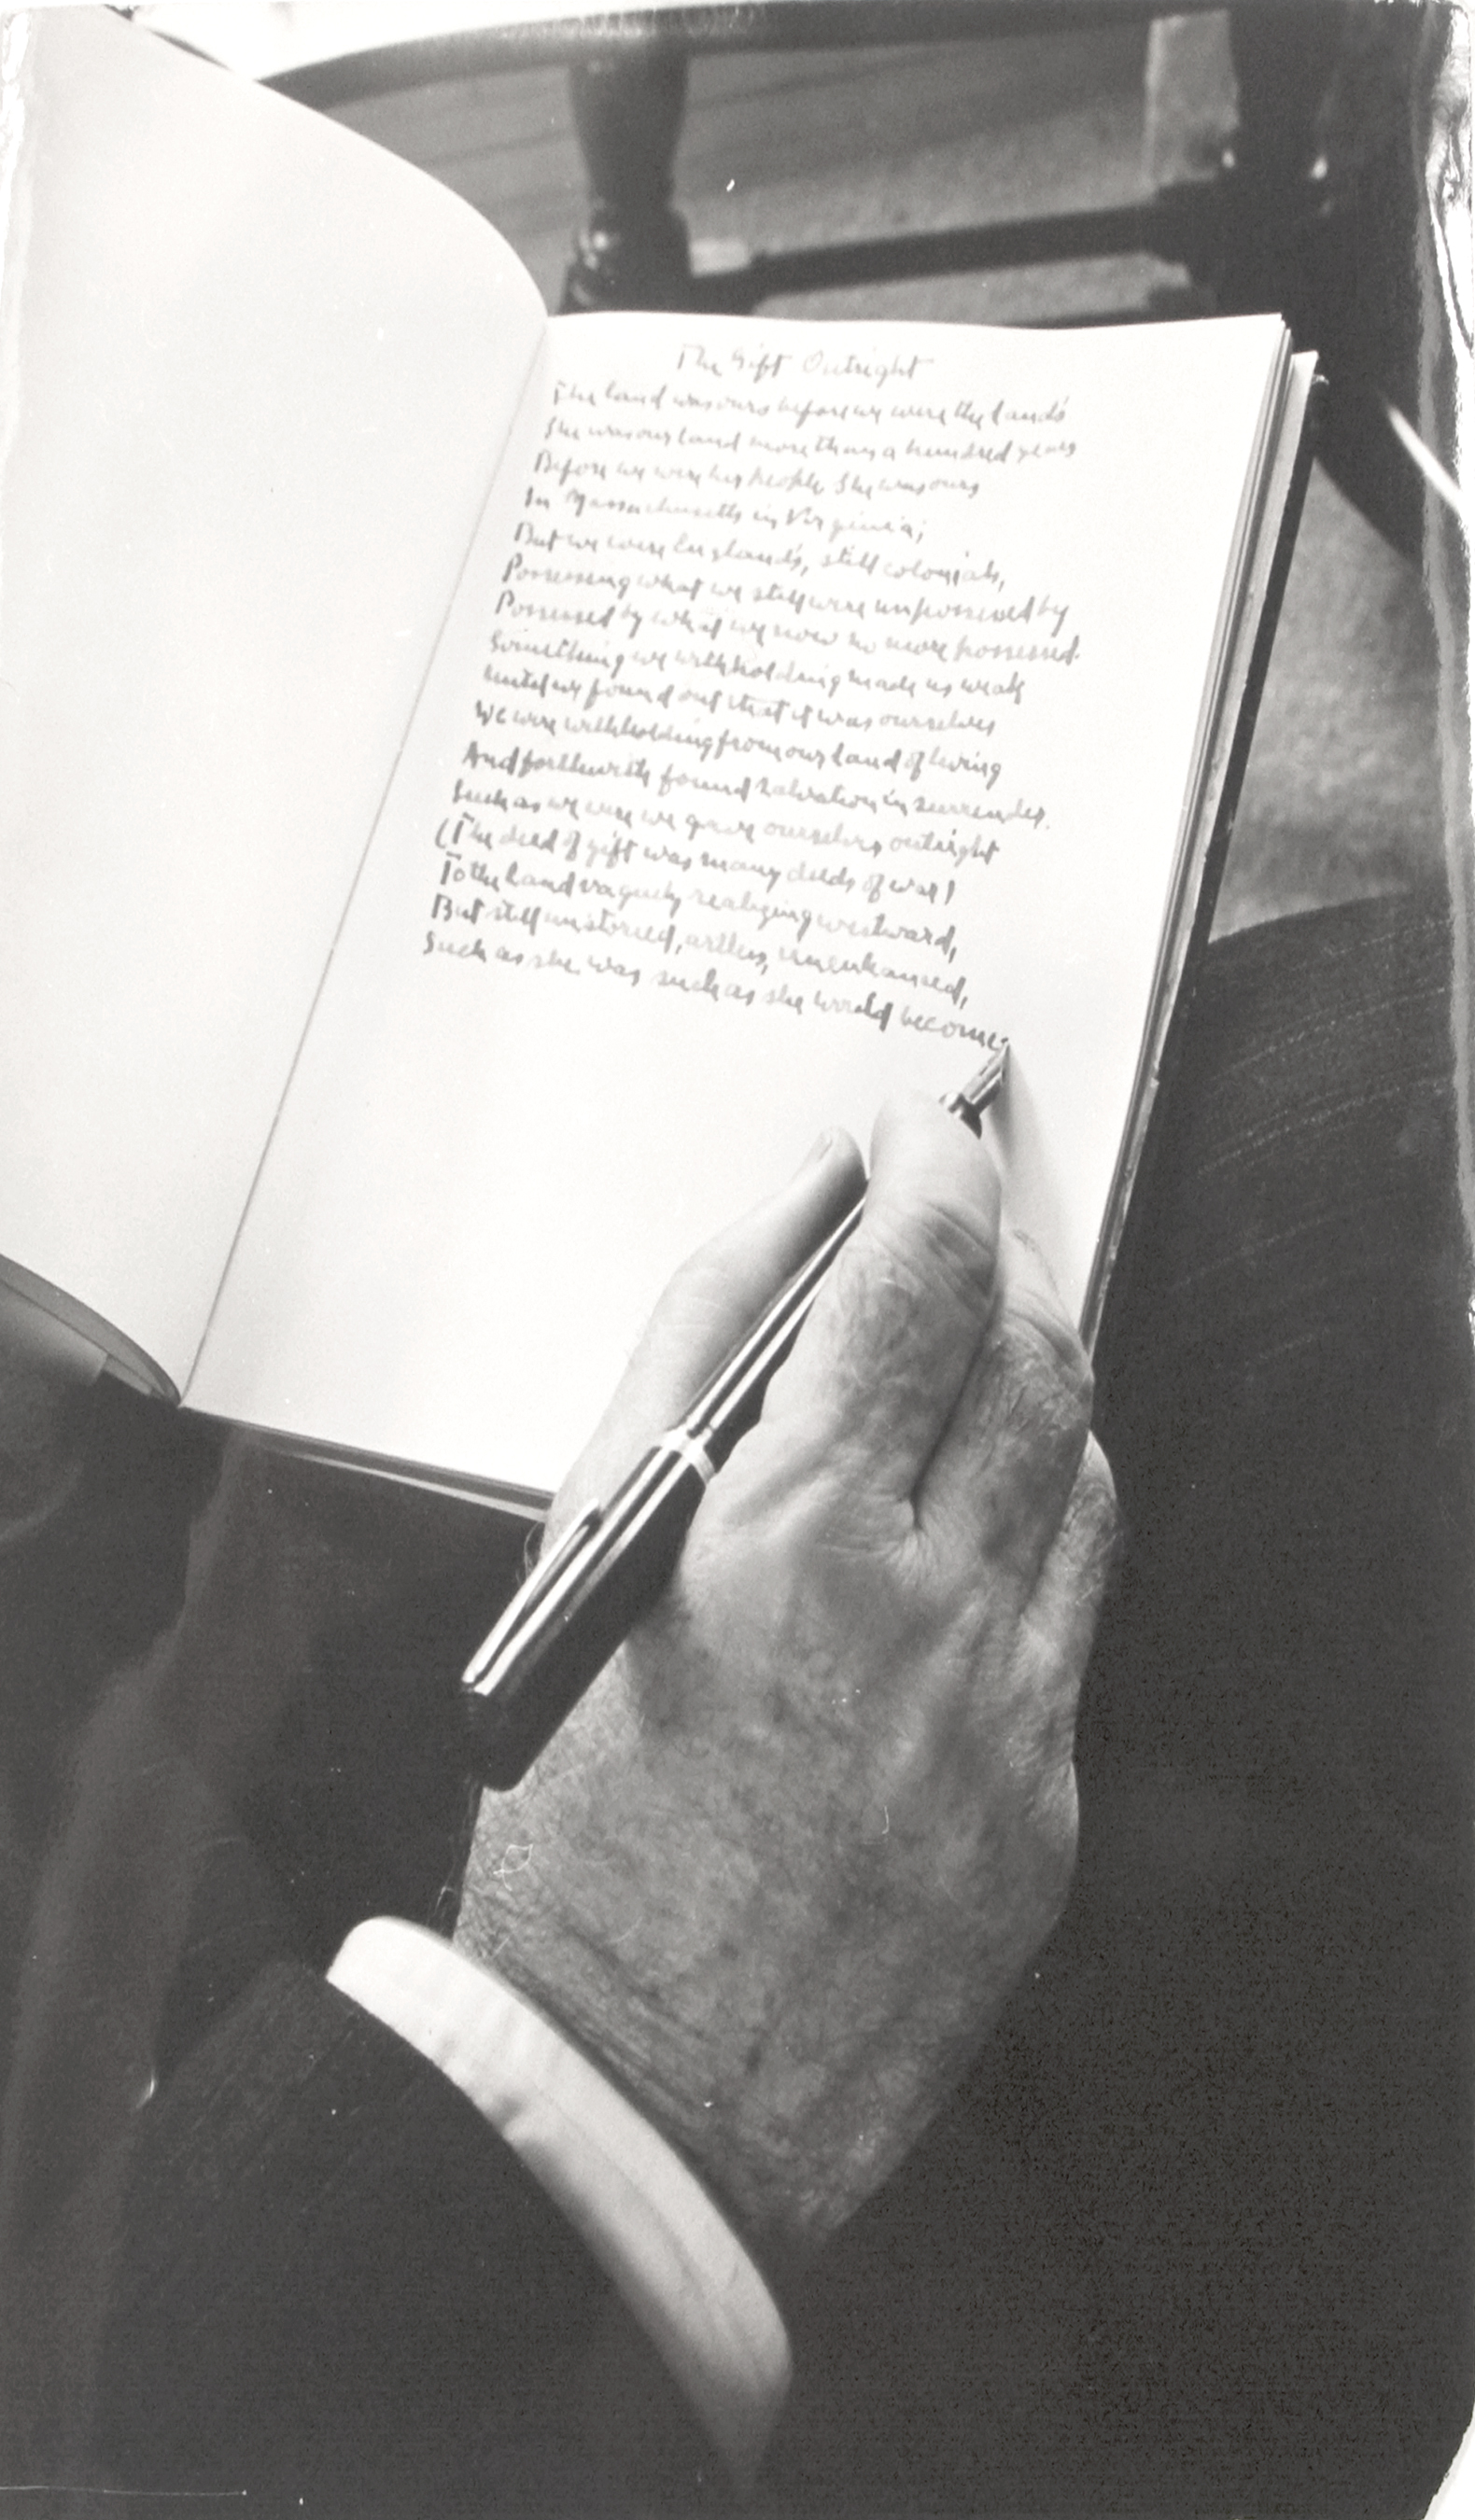 The Gift Outright
The land was ours before we were the land's
She was our land more than a hundred years
Before we were her people. She was ours
In Massachusetts in Virginia;
But we were England's, still colonials,
Possessing what we still were unpossessed by
Possessed by what we now no more possessed.
Something we were withholding made us weak
Until we found out that it was ourselves
We were withholding from our land of living
And forthwith found salvation in surrender.
Such as we were we gave ourselves outright
(The deed of gift was many deeds of war)
To the land vaguely realizing westward,
But still unstoried, artless, unenhanced,
Such as she was such as she would become.